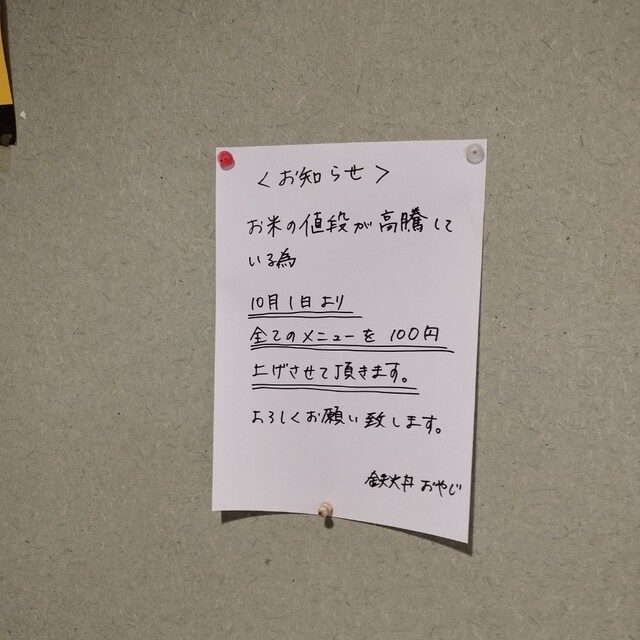 ＜お知らせ＞
お米の値段が高騰して
いる為
10月1日より
全てのメニューを 100円
上げさせて頂きます。
よろしくお願い致します。
おやじ